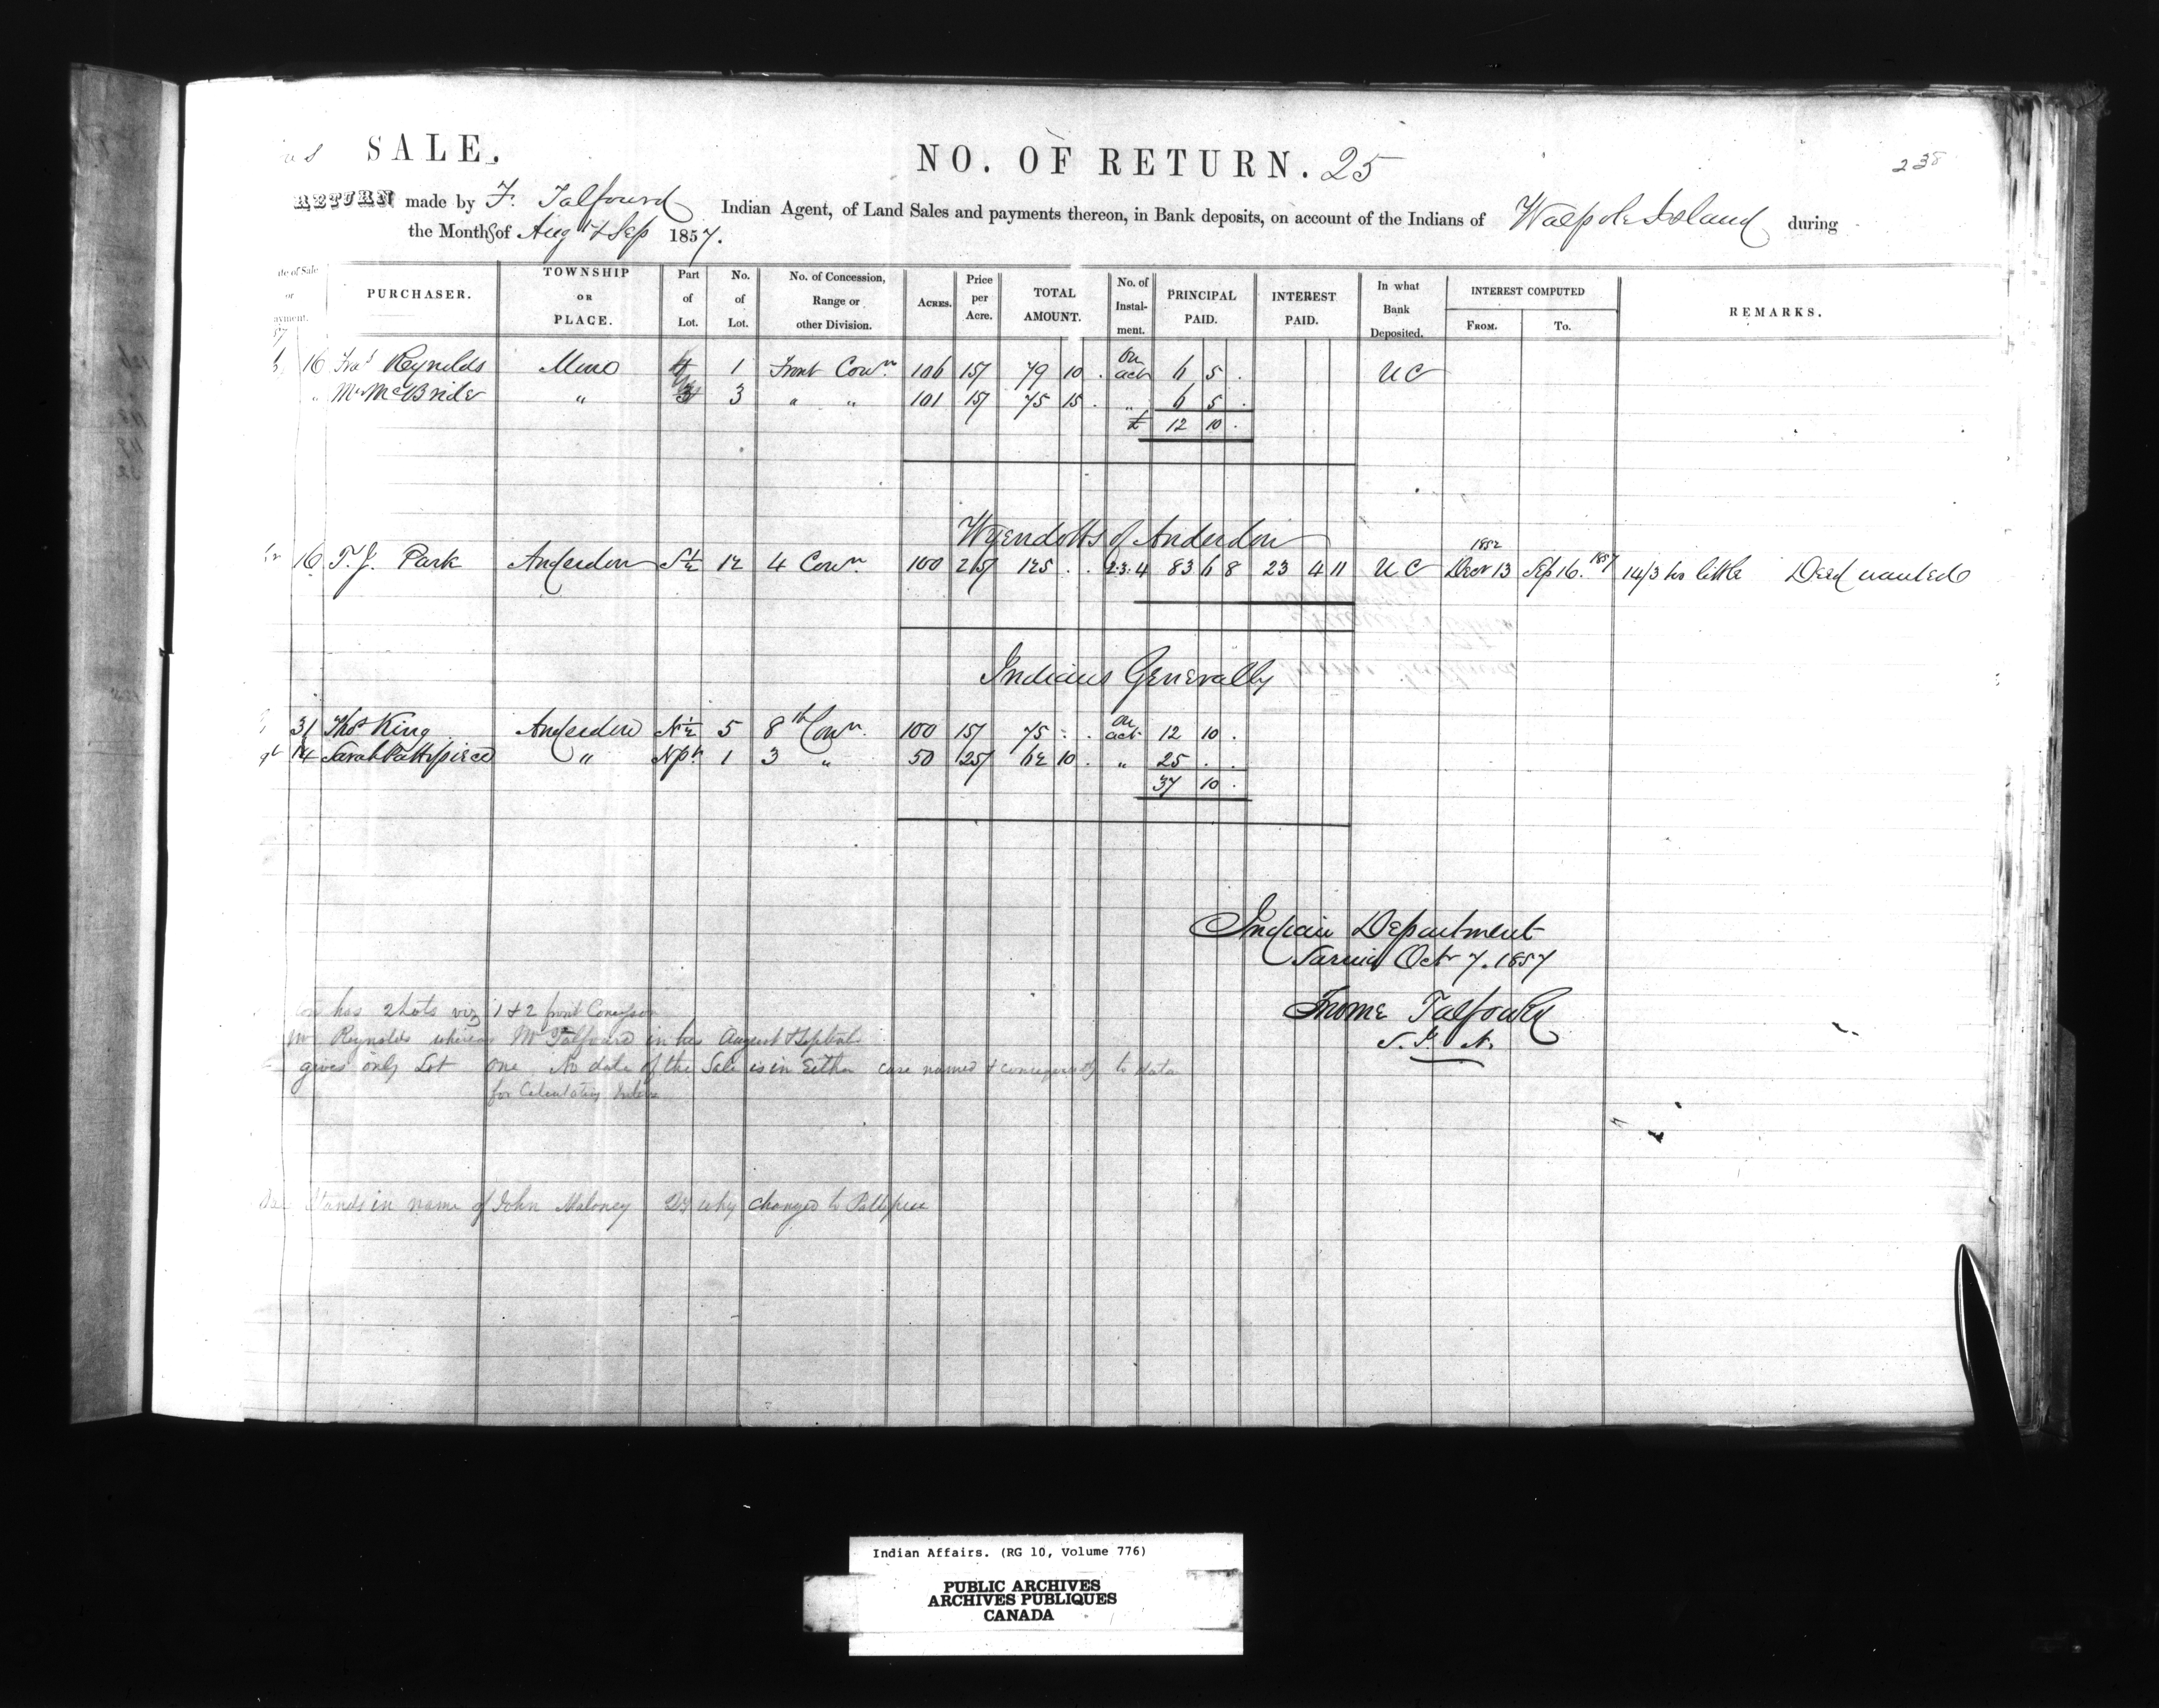 SALE. NO. OF RETURN. 25
RETURN made by F. Talfourd Indian Agent, of Land Sales and payments thereon, in Bank deposits, on account of the Indians of Walpole Island during
the Months of Augt & Sep 1857.
PURCHASER. TOWNSHIP OR PLACE. Part of Lot. No. of Lot. No. of Concession, Range or other Division. ACRES. Price per Acre. TOTAL AMOUNT. No. of Instal-ment. PRINCIPAL PAID. INTEREST PAID. In what Bank Deposited. INTEREST COMPUTED FROM. TO. REMARKS.
16 Fras Reynolds Moore 1 Front Conn. 106 15/ 79 10 . On act 6 5 . U C
" Mr McBride " 3 " " 101 15/ 75 15 . " 6 5 .
£ 12 10 .
Wyendotts of Anderdon
16 T. J. Park Anderdon S ½ 12 4 Conn. 100 25/ 125 . . 2.3.4 83 6 8 23 4 11 U C 1852 Decr 13 Sep 16. 1857 14/3 too little Deed wanted
Indians Generally
31 Thos King Anderdon N ½ 5 8th Conn. 100 15/ 75 . . On act 12 10 .
14 Sarah Pattypiece " N pt 1 3 " 50 25/ 62 10 . " 25 . .
37 10 .
Indian Department
Sarnia Octr 7. 1857
Froome Talfourd
S. I. A.
has 2 Lots viz 1 & 2 front Concession
Mr Reynolds whereas Mr Talfourd in his August & Septr
gives only Lot one. No date of the Sale is in Either case named & consequently no data
for Calculating
Stands in name of John Maloney Qy why changed to Pattypiece
Indian Affairs. (RG 10, Volume 776)
PUBLIC ARCHIVES
ARCHIVES PUBLIQUES
CANADA